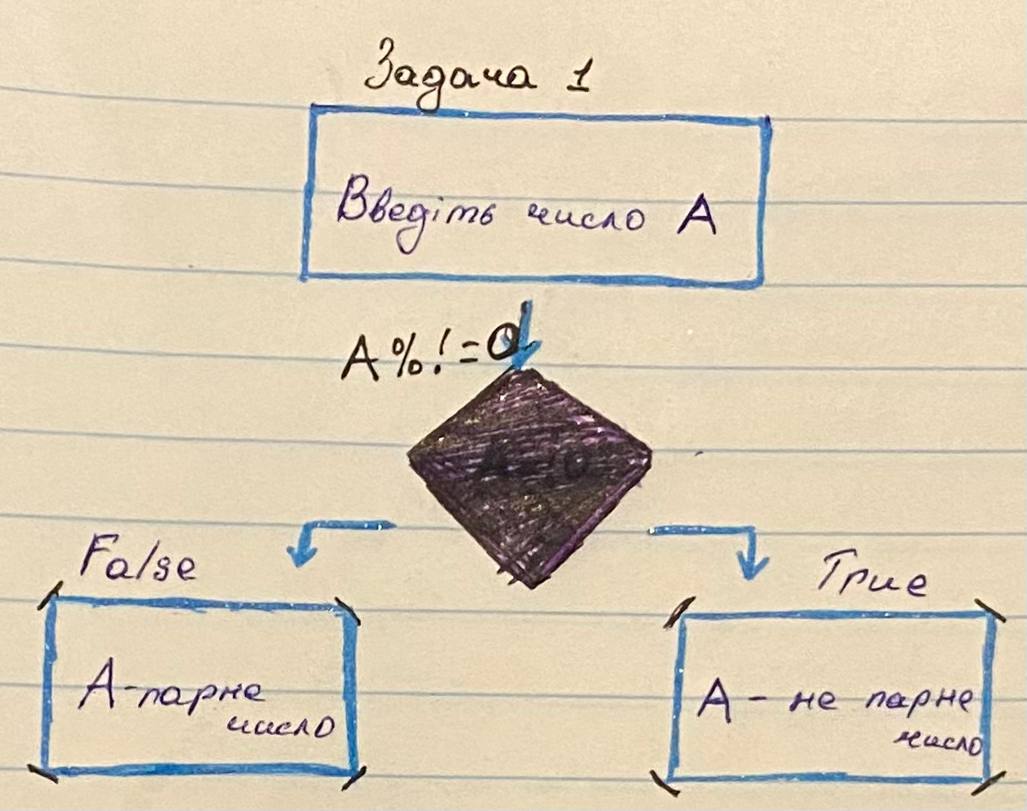 Задача 1
Введіть число A
A%!=0
False
True
A-парне
число
A - не парне
число